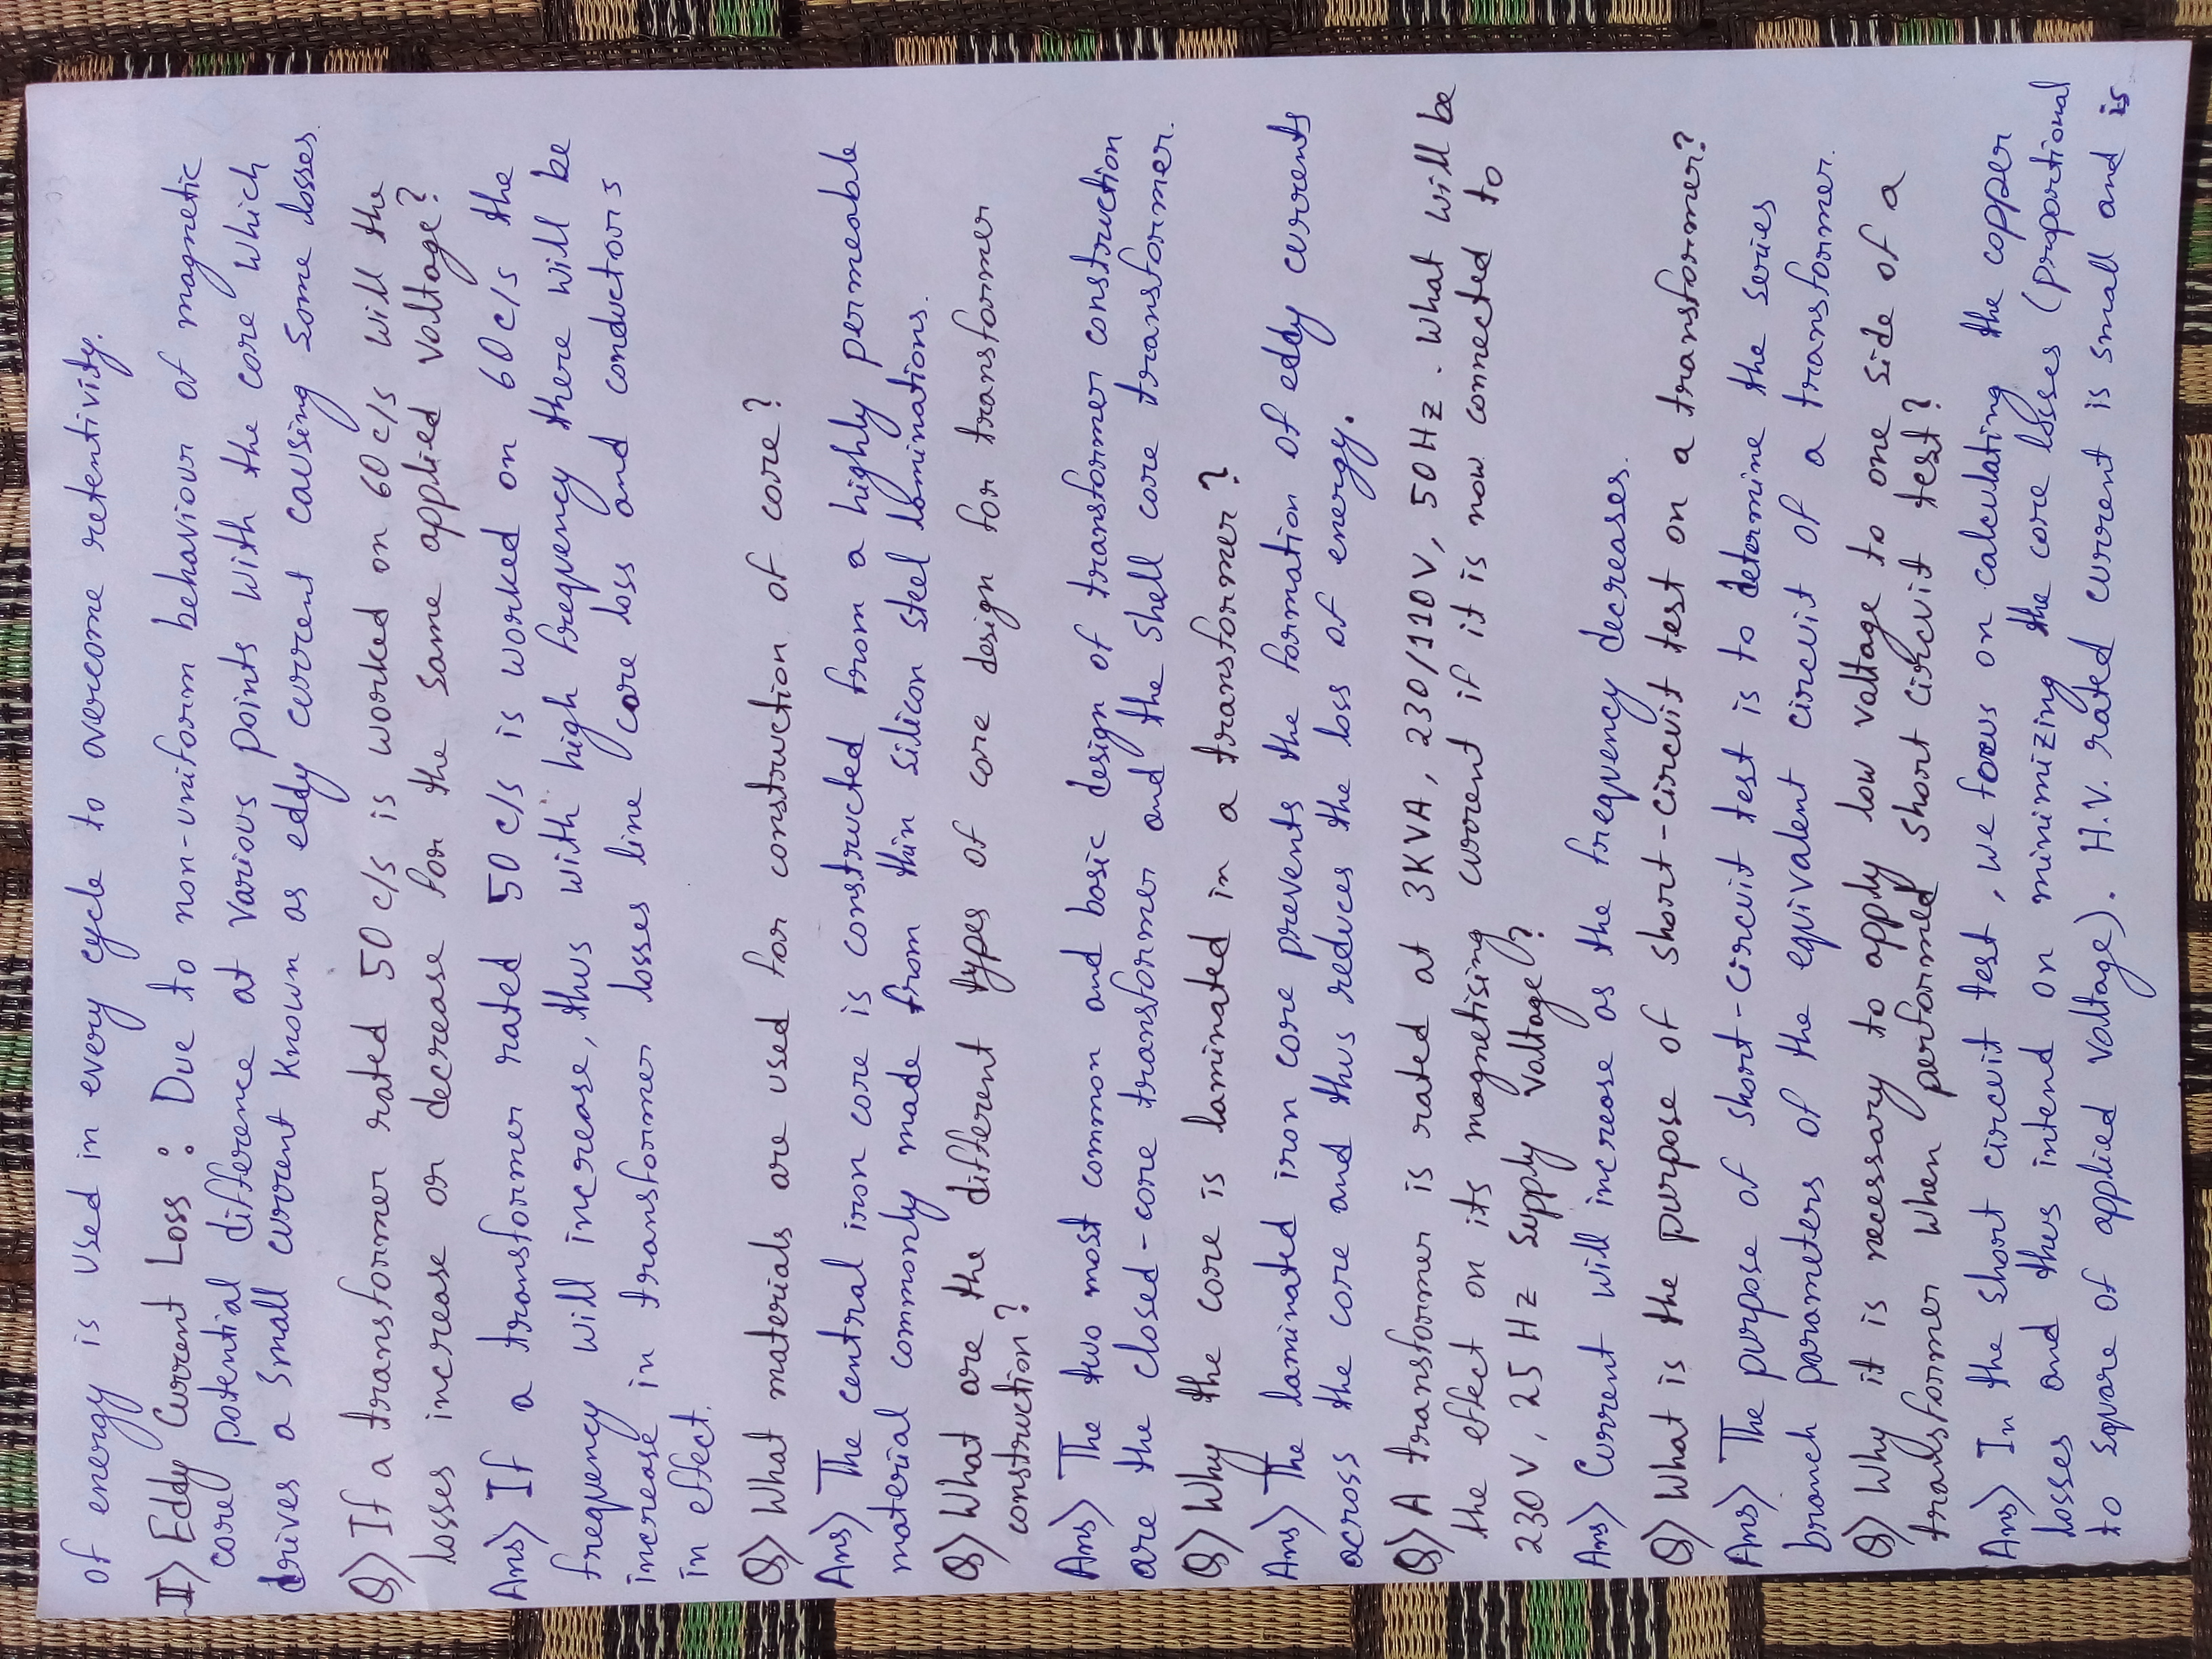 of energy is used in every cycle to overcome retentivity.
II) Eddy Current Loss : Due to non-uniform behaviour of magnetic
core potential difference at various points with the core which
drives a small current known as eddy current causing some losses.
Q) If a transformer rated 50 c/s is worked on 60 c/s will the
losses increase or decrease for the same applied voltage?
Ans) If a transformer rated 50 c/s is worked on 60 c/s the
frequency will increase, thus with high frequency there will be
increase in transformer losses line core loss and conductors
in effect.
Q) What materials are used for construction of core?
Ans) The central iron core is constructed from a highly permeable
material commonly made from thin silicon steel laminations.
Q) What are the different types of core design for transformer
construction?
Ans) The two most common and basic design of transformer construction
are the closed-core transformer and the shell core transformer.
Q) Why the core is laminated in a transformer?
Ans) The laminated iron core prevents the formation of eddy currents
across the core and thus reduces the loss of energy.
Q) A transformer is rated at 3KVA, 230/110V, 50Hz. What will be
the effect on its magnetising current if it is now connected to
230V, 25 Hz supply voltage?
Ans) Current will increase as the frequency decreases.
Q) What is the purpose of short-circuit test on a transformer?
Ans) The purpose of short-circuit test is to determine the series
branch parameters of the equivalent circuit of a transformer.
Q) Why it is necessary to apply low voltage to one side of a
transformer when performed short circuit test?
Ans) In the short circuit test, we focus on calculating the copper
losses and thus intend on minimizing the core losses (proportional
to square of applied voltage). H.V. rated current is small and is